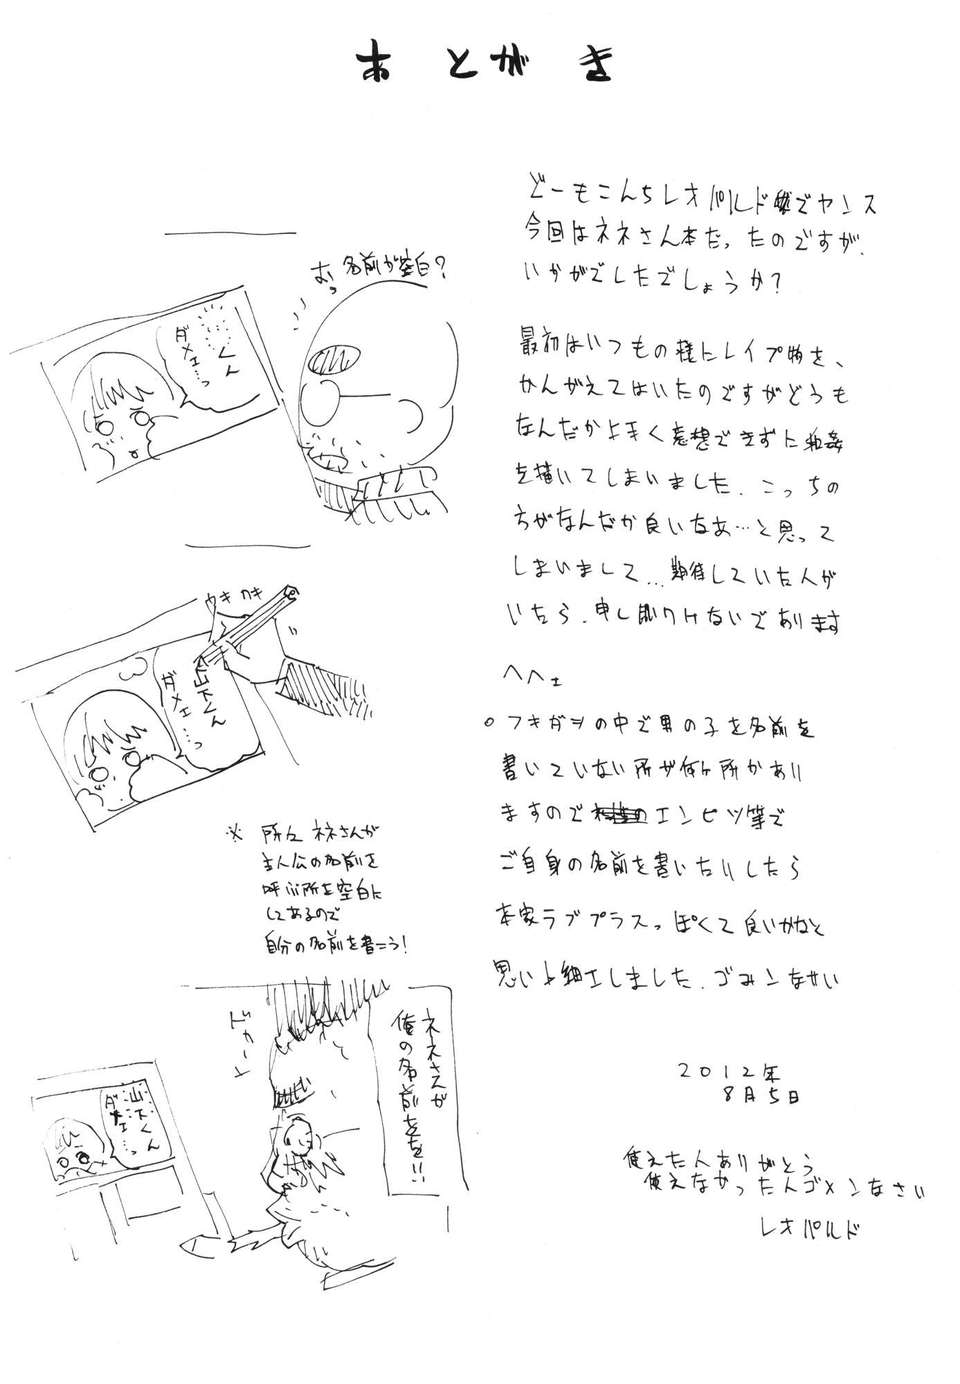 あとがき
どーもこんちレオパルドでヤンス
今回はネネさん本だったのですが、
いかがでしたでしょうか？
最初はいつもの様にレイプ物を、
かんがえてはいたのですがどうも
なんだか上手く妄想できずに和姦
を描いてしまいました。こっちの
方がなんだか良いなあ…と思って
しまいまして…期待していた人が
いたら、申し訳ないであります
へへェ
○フキダシの中で男の子を名前を
書いていない所が何ヶ所かあり
ますのでエンピツ等で
ご自身の名前を書いたりしたら
本家ラブプラスっぽくて良いかなと
思い小細工しました。ゴメンなさい
2012年
8月5日
使えた人ありがとう
使えなかった人ゴメンなさい
レオパルド
おっ 名前が空白？
くん
ダメェ…っ
カキカキ
山下くん
ダメェ…っ
※ 所々ネネさんが
主人公の名前を
呼ぶ所を空白に
してあるので
自分の名前を書こう！
ネネさんが
俺の名前をを！！
山下くん
ダメェ…っ